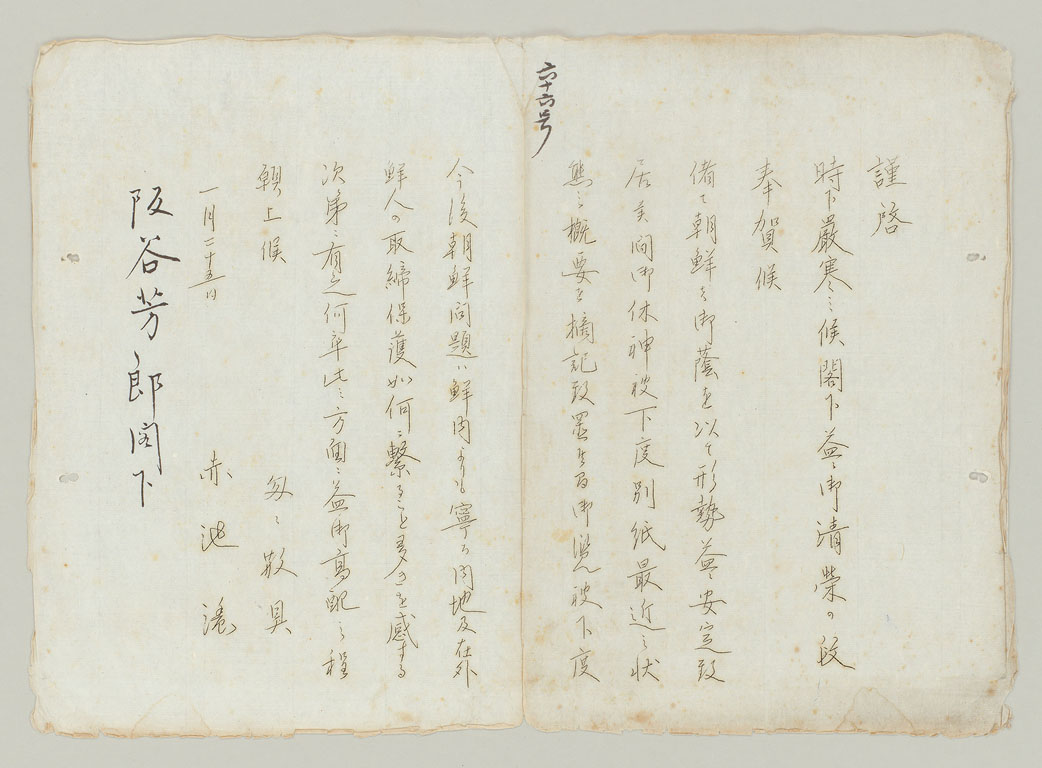 六十六号
謹啓
時下厳寒之候閣下益々御清栄の段
奉賀候
偖て朝鮮も御蔭を以て形勢益々安定致
居候間御休神被下度別紙最近之状
態之概要を摘記致置候間御覧被下度
今後朝鮮問題は鮮内よりも寧ろ内地及在外
鮮人の取締保護如何に繋ること多きを感する
次第に有之何卒此之方面に益御高配之程
願上候
匆々敬具
一月二十五日
赤池濃
阪谷芳郎閣下